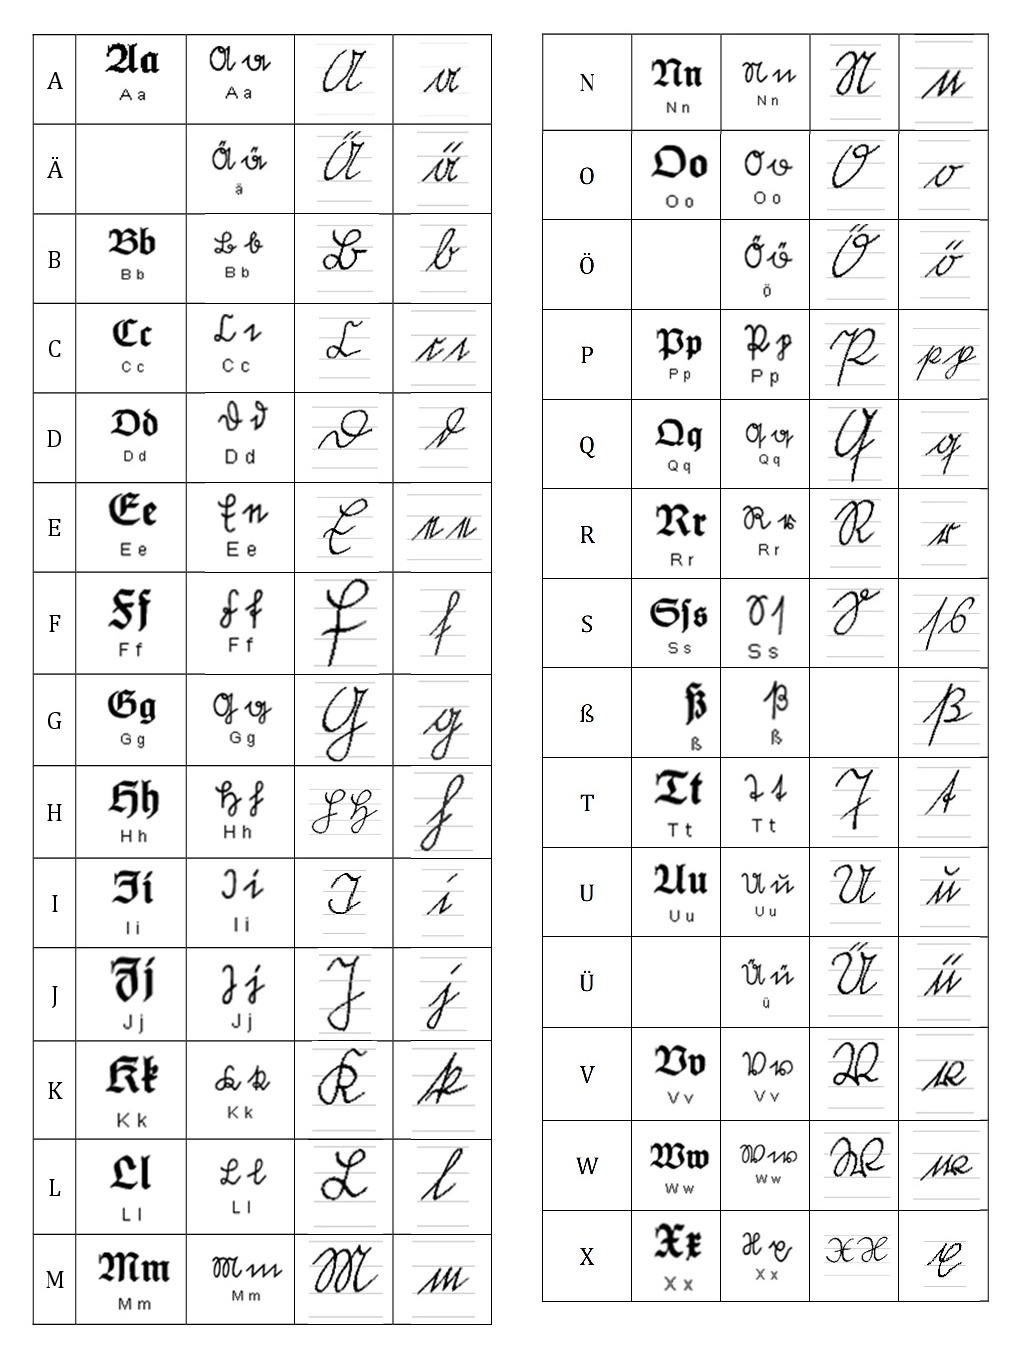 A Aa Aa A a
A a A a
Ä Ä ä Ä ä
ä
B Bb B b B b
B b B b
C Cc C c C c c
C c C c
D Dd D d D d
D d D d
E Ee E e E e e
E e E e
F Ff F f F f
F f F f
G Gg G g G g
G g G g
H Hh H h H H h
H h H h
I Ii I i I i
I i I i
J Jj J j J j
J j J j
K Kk K k K k
K k K k
L Ll L l L l
L l L l
M Mm M m M m
M m M m
N Nn N n N n
N n N n
O Oo O o O o
O o O o
Ö Ö ö Ö ö
ö
P Pp P p P p p
P p P p
Q Qq Q q Q q
Q q Q q
R Rr R r R r
R r R r
S Sſs S ſ S ſ s
S s S s
ß ß ß ß
ß ß
T Tt T t T t
T t T t
U Uu U u U u
U u U u
Ü Ü ü Ü ü
ü
V Vv V v V v
V v V v
W Ww W w W w
W w W w
X Xx X x X X x
X x X x